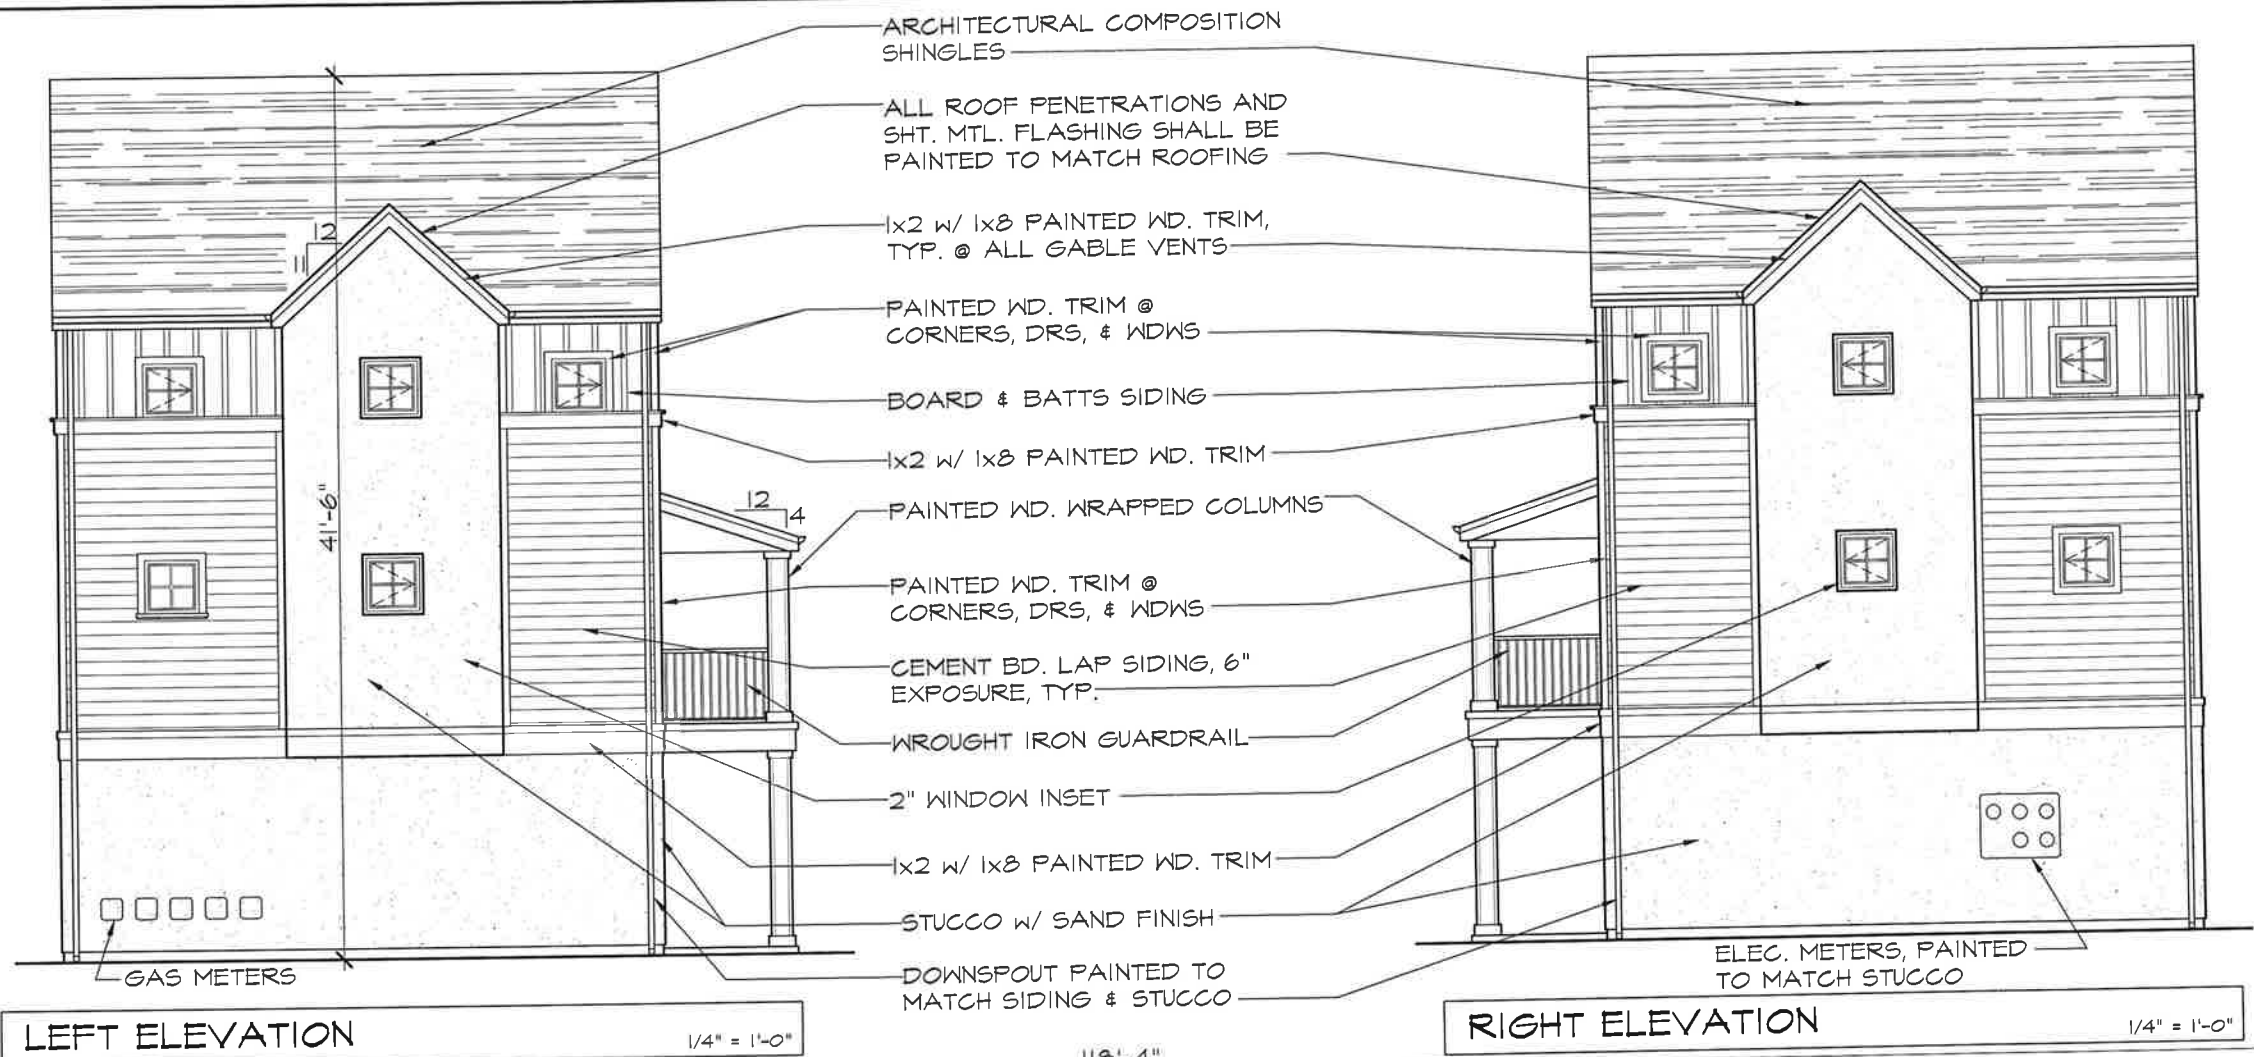 ARCHITECTURAL COMPOSITION
SHINGLES
ALL ROOF PENETRATIONS AND
SHT. MTL. FLASHING SHALL BE
PAINTED TO MATCH ROOFING
1x2 w/ 1x8 PAINTED WD. TRIM,
TYP. @ ALL GABLE VENTS
PAINTED WD. TRIM @
CORNERS, DRS, & WDWS
BOARD & BATTS SIDING
1x2 w/ 1x8 PAINTED WD. TRIM
PAINTED WD. WRAPPED COLUMNS
PAINTED WD. TRIM @
CORNERS, DRS, & WDWS
CEMENT BD. LAP SIDING, 6"
EXPOSURE, TYP.
WROUGHT IRON GUARDRAIL
2" WINDOW INSET
1x2 w/ 1x8 PAINTED WD. TRIM
STUCCO w/ SAND FINISH
DOWNSPOUT PAINTED TO
MATCH SIDING & STUCCO
12
11
41'-6"
12
4
GAS METERS
LEFT ELEVATION
1/4" = 1'-0"
ELEC. METERS, PAINTED
TO MATCH STUCCO
RIGHT ELEVATION
1/4" = 1'-0"